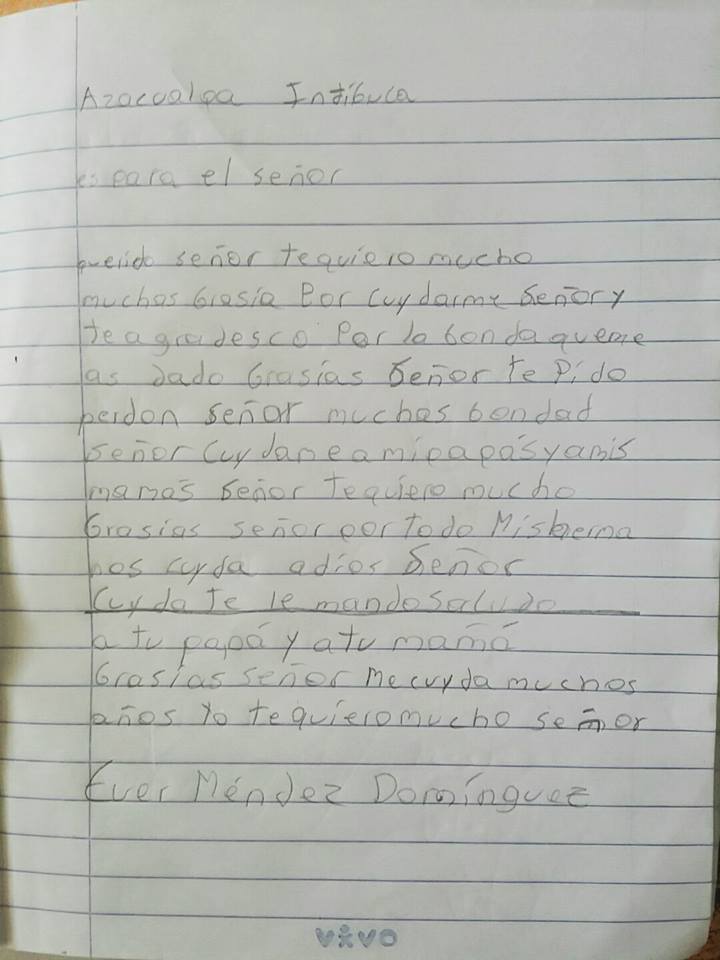 Azacualpa Intíbuca
es para el señor
querido señor te quiero mucho
muchas Grasia Por cuydarme Señor y
te agradesco Por la bonda que me
as dado Grasías Señor te Pido
perdon señor muchas bondad
señor cuydame a mi papás y a mis
mamas señor te quiero mucho
Grasias señor por todo Mis
nos cuyda adios Señor
cuyda te le mando saludo
a tu papá y a tu mamá
Grasías señor me cuyda muchos
años yo te quiero mucho señor
Ever Méndez Domínguez
vivo